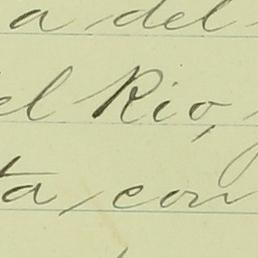 a del
el Rio,
ta con